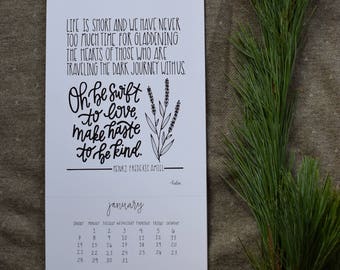 LIFE IS SHORT AND WE HAVE NEVER
TOO MUCH TIME FOR GLADDENING
THE HEARTS OF THOSE WHO ARE
TRAVELING THE DARK JOURNEY WITH US.
Oh be swift
to love,
make haste
to be kind.
HENRI FREDERIC AMIEL
january
SUNDAY MONDAY TUESDAY WEDNESDAY THURSDAY FRIDAY SATURDAY
1 2 3 4 5 6
7 8 9 10 11 12 13
14 15 16 17 18 19 20
21 22 23 24 25 26 27
28 29 30 31